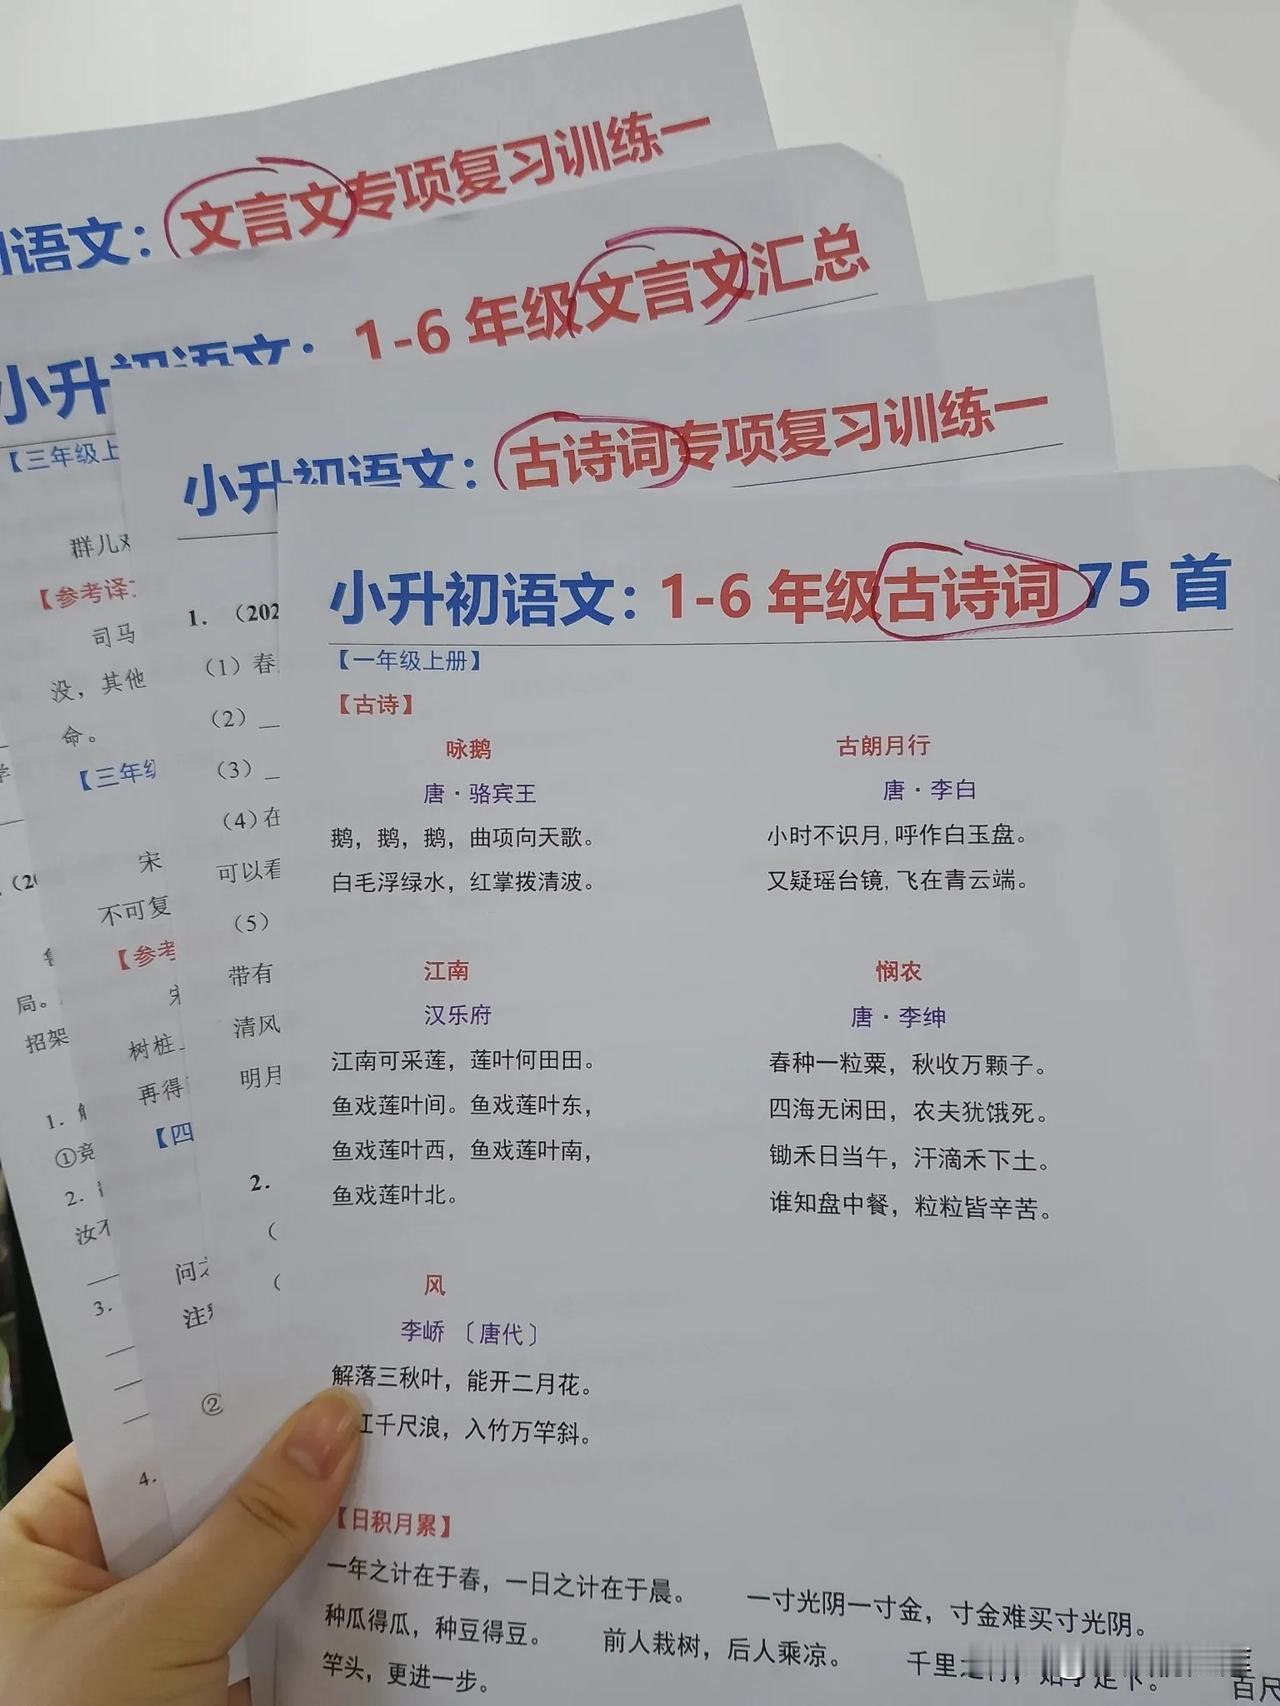 语文：文言文专项复习训练一
小升初语文：1-6年级文言文汇总
【三年级上
群儿
【参考译
司马
没，其他
命。
【三年级
宋
不可复
【参考
树桩
再得
【四
问
注
②
小升初语文：古诗词专项复习训练一
1. （202
（1）春
（2）
（3）
（4）在
可以看
（5）
带有
清风
明月
2.
局。
招架
1.
①竞
2.
汝不
3.
4.
小升初语文：1-6年级古诗词75首
【一年级上册】
【古诗】
咏鹅
唐·骆宾王
鹅，鹅，鹅，曲项向天歌。
白毛浮绿水，红掌拨清波。
古朗月行
唐·李白
小时不识月,呼作白玉盘。
又疑瑶台镜,飞在青云端。
江南
汉乐府
江南可采莲，莲叶何田田。
鱼戏莲叶间。鱼戏莲叶东，
鱼戏莲叶西，鱼戏莲叶南，
鱼戏莲叶北。
悯农
唐·李绅
春种一粒粟，秋收万颗子。
四海无闲田，农夫犹饿死。
锄禾日当午，汗滴禾下土。
谁知盘中餐，粒粒皆辛苦。
风
李峤〔唐代〕
解落三秋叶，能开二月花。
江千尺浪，入竹万竿斜。
【日积月累】
一年之计在于春，一日之计在于晨。 一寸光阴一寸金，寸金难买寸光阴。
种瓜得瓜，种豆得豆。 前人栽树，后人乘凉。 千里之行，始于足下。 百尺
竿头，更进一步。